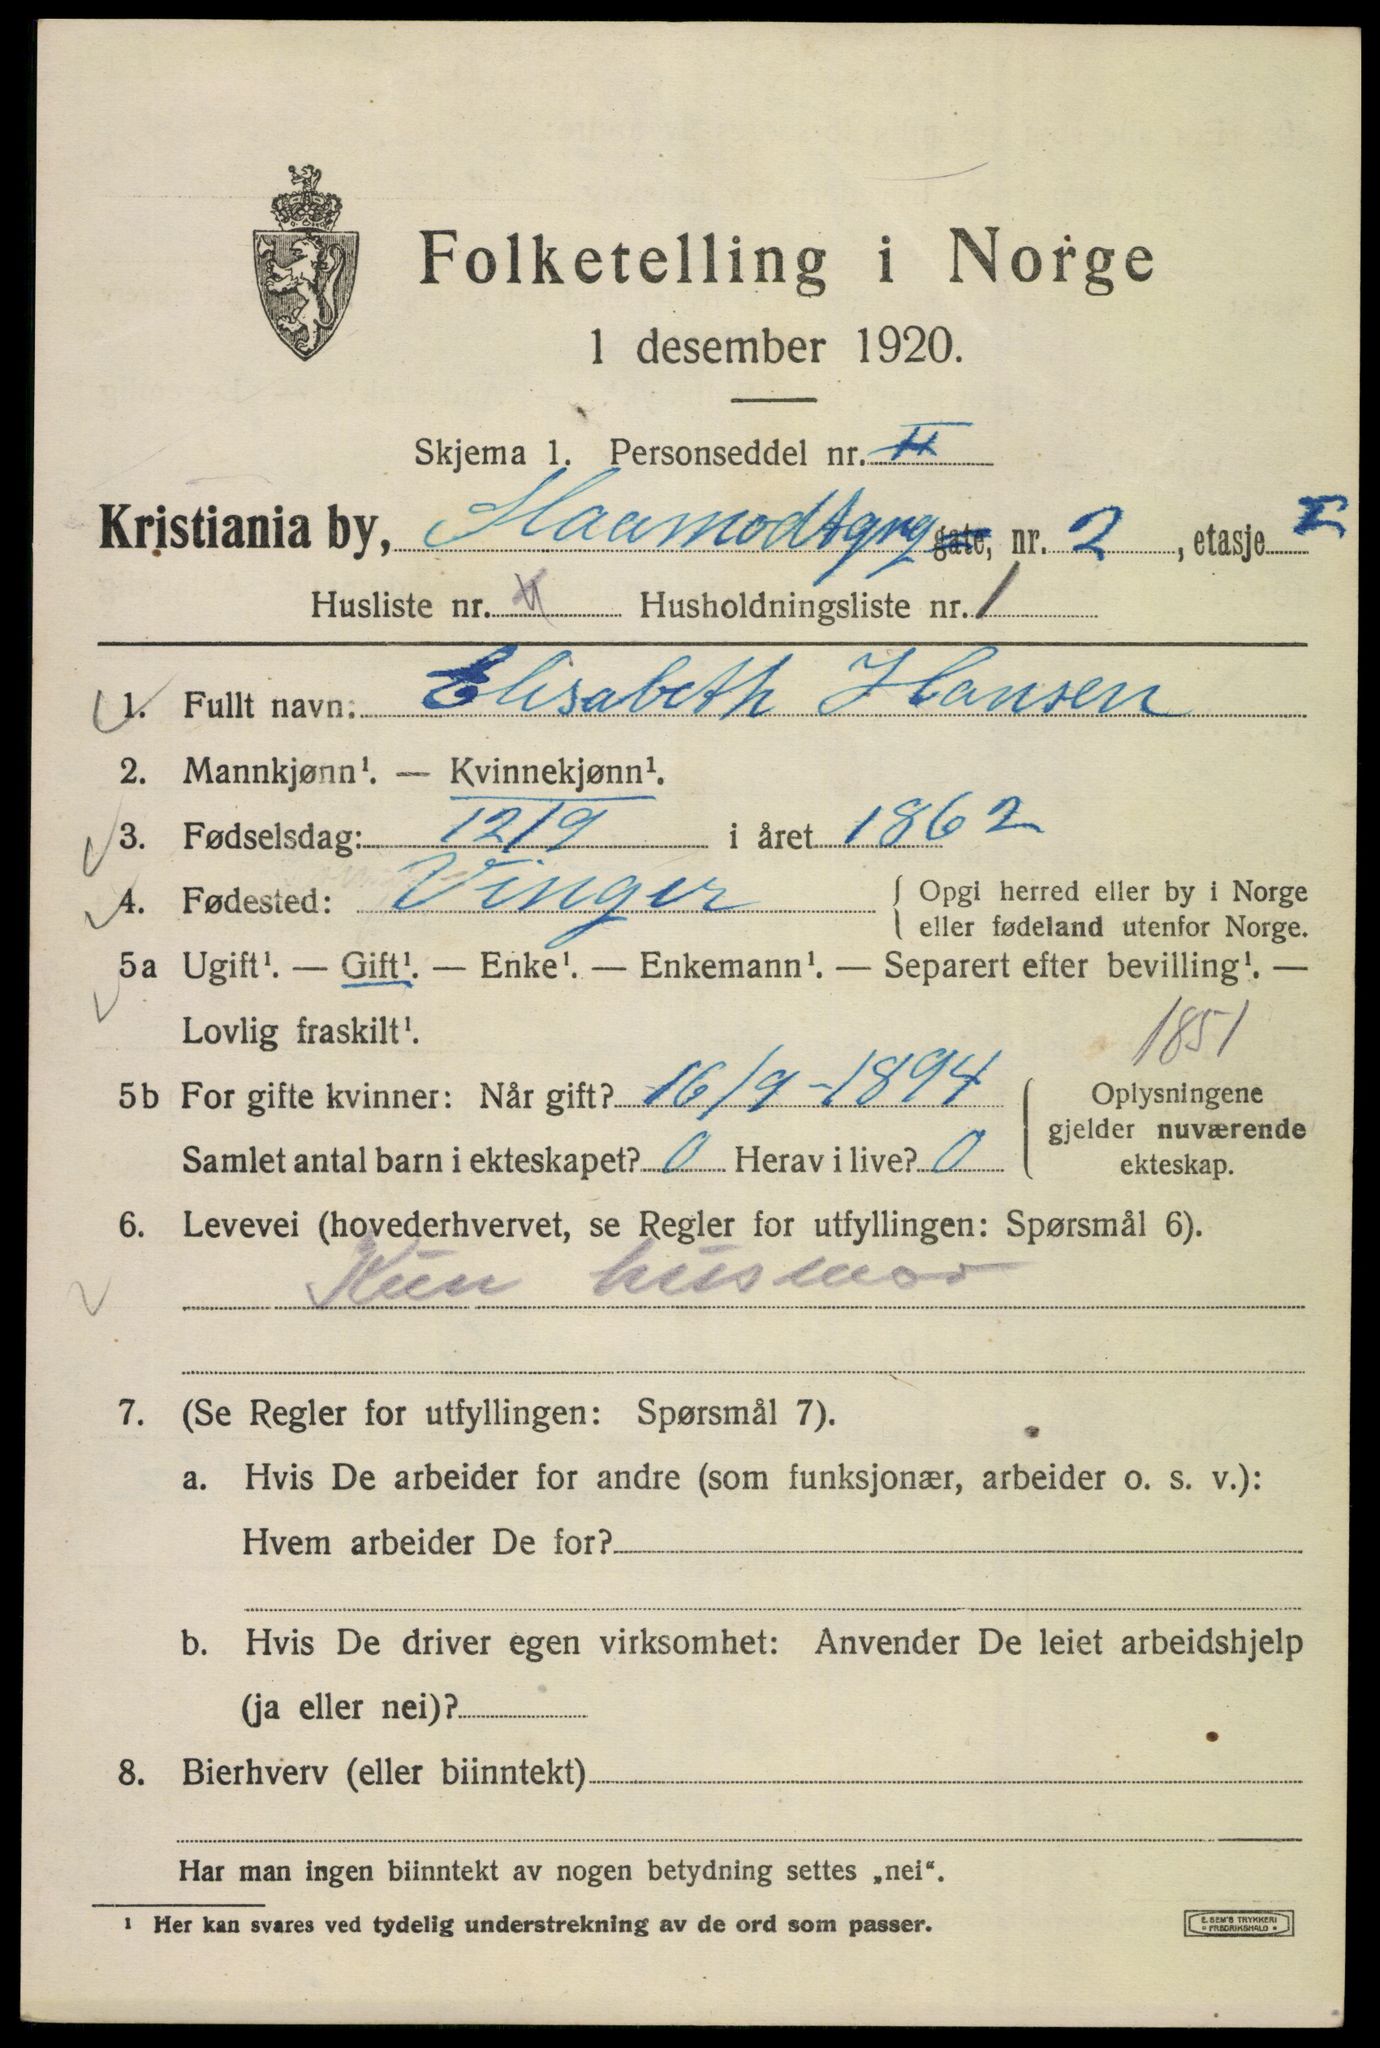 Folketelling i Norge
1 desember 1920.
Skjema 1. Personseddel nr. II
Kristiania by, Haamodtgrg gate, nr. 2, etasje I
Husliste nr. Husholdningsliste nr. 1
1. Fullt navn: Elisabeth Hansen
2. Mannkjønn¹. — Kvinnekjønn¹.
3. Fødselsdag: 12/9 i året 1862
4. Fødested: Vinger { Opgi herred eller by i Norge
eller fødeland utenfor Norge.
5a Ugift¹. — Gift¹. — Enke¹. — Enkemann¹. — Separert efter bevilling¹. —
Lovlig fraskilt¹.
1851
5b For gifte kvinner: Når gift? 16/9-1894 { Oplysningene
gjelder nuværende
Samlet antal barn i ekteskapet? 0 Herav i live? 0 ekteskap.
6. Levevei (hovederhvervet, se Regler for utfyllingen: Spørsmål 6).
Kun husmor
7. (Se Regler for utfyllingen: Spørsmål 7).
a. Hvis De arbeider for andre (som funksjonær, arbeider o. s. v.):
Hvem arbeider De for?
b. Hvis De driver egen virksomhet: Anvender De leiet arbeidshjelp
(ja eller nei)?
8. Bierhverv (eller biinntekt)
Har man ingen biinntekt av nogen betydning settes „nei“.
¹ Her kan svares ved tydelig understrekning av de ord som passer.
E. SEM'S TRYKKERI
FREDRIKSHALD